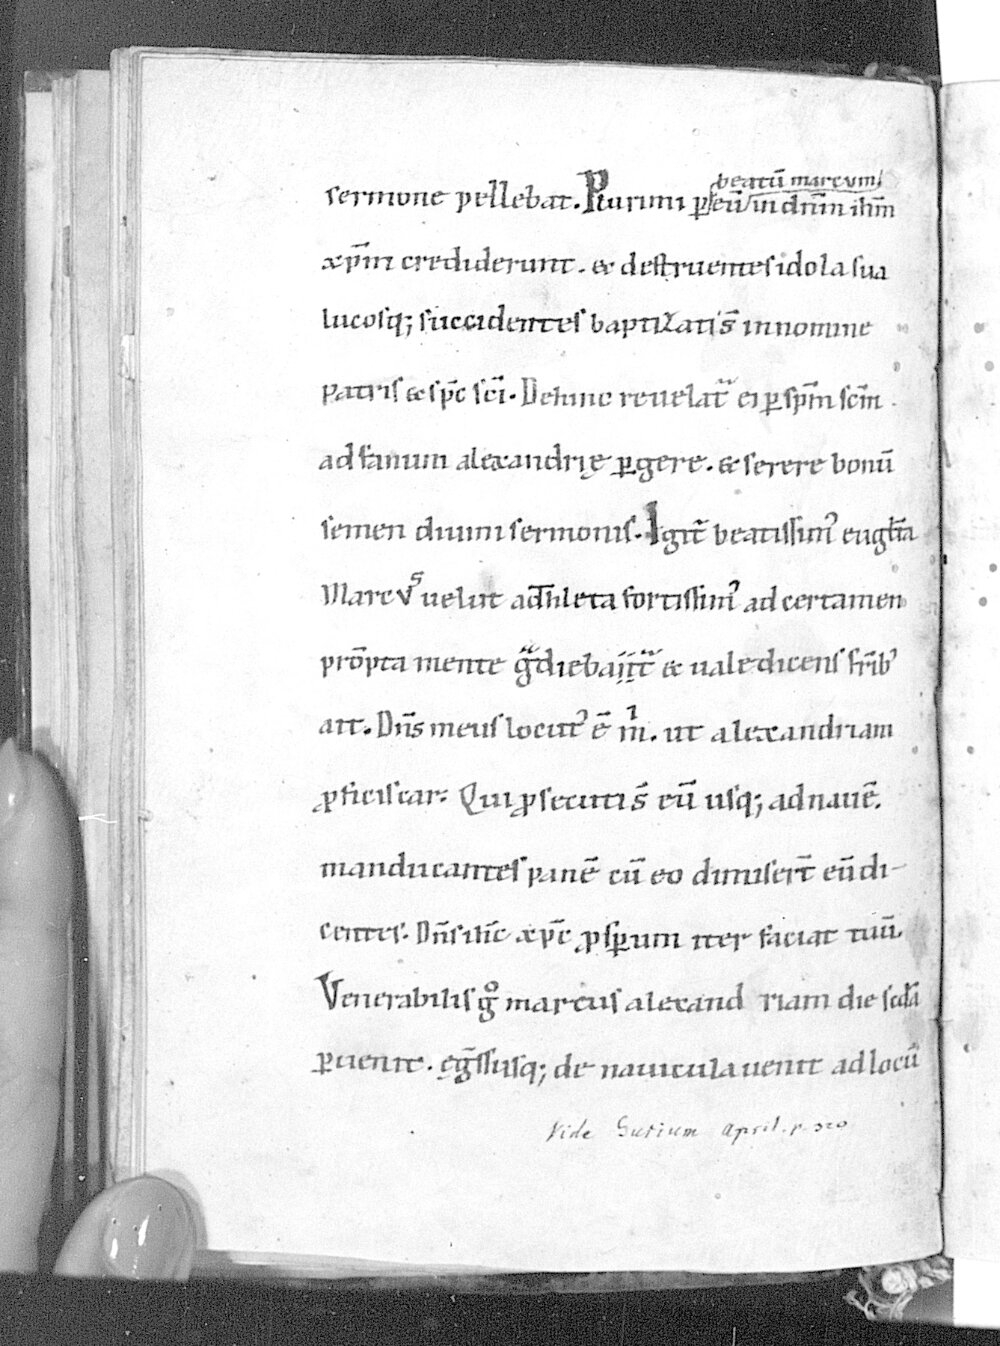 beatū marcum
sermone pellebat. Plurimi ꝑ eū in dn̄m ihm̄
xp̄m crediderunt. & destruentes idola sua
lucosq; succidentes baptizati s̄ in nomine
patris & sp̄c sc̄i. Dehinc reuelat̄ ei ꝑ sp̄m sc̄m
ad fanum alexandrię ꝑgere. & serere bonū
semen diuini sermonis. Igit̄ beatissimꝰ eugl̄ta
Marcus uelut adhleta fortissimꝰ ad certamen
prōpta mente & ualedicens frībꝰ
ait. Dn̄s meus locutꝰ ē m̄. ut alexandriam
ꝓficiscar. Qui ꝓsecuti s̄ eū usq; ad nauē.
manducantes panē cū eo dimiser̄t eū di-
centes. Dn̄s ih̄c xp̄c ꝓsꝑum iter faciat tuū
Venerabilis gͦ marcus alexand riam die scd̄a
ꝑuenit. egs̄susq; de nauicula uenit ad locū
Vide Surium April. p.